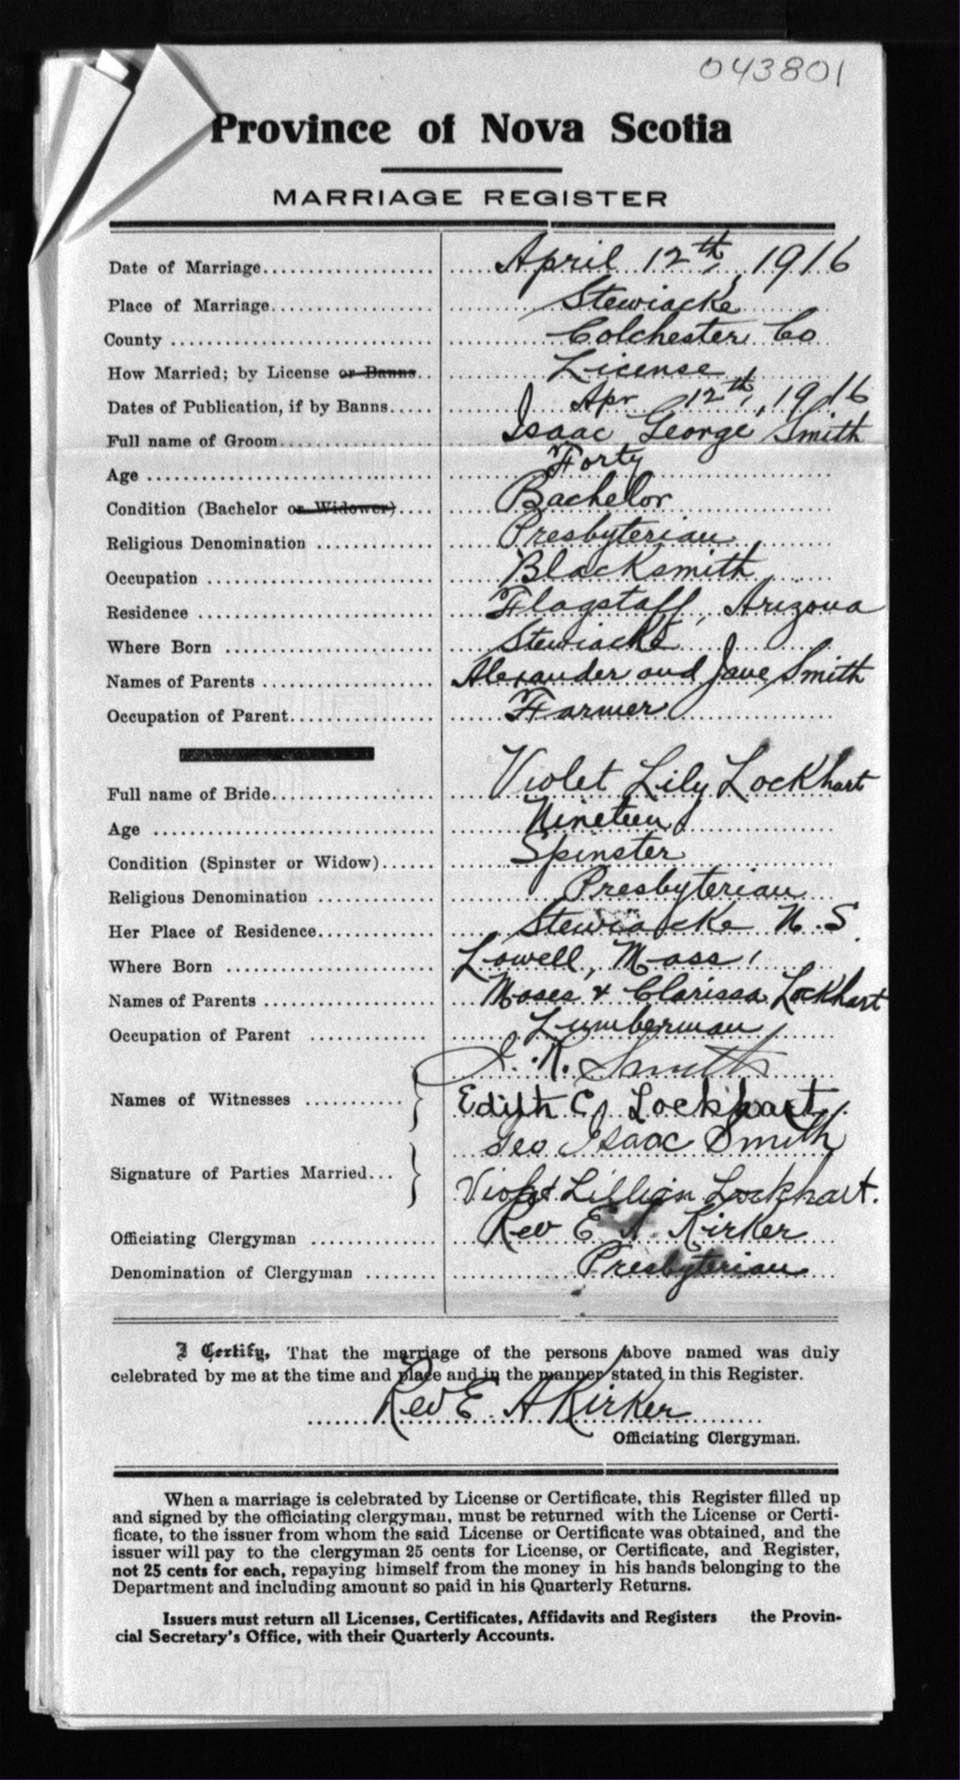 043801
Province of Nova Scotia
MARRIAGE REGISTER
Date of Marriage.................... April 12th, 1916
Place of Marriage................... Stewiacke
County .............................. Colchester Co
How Married; by License or Banns.. License
Dates of Publication, if by Banns..... Apr 12th, 1916
Full name of Groom.................. Isaac George Smith
Age ................................. Forty
Condition (Bachelor or Widower).... Bachelor
Religious Denomination .............. Presbyterian
Occupation .......................... Blacksmith
Residence ........................... Flagstaff, Arizona
Where Born ........................ Stewiacke
Names of Parents .................... Alexander and Jane Smith
Occupation of Parent................. Farmer
Full name of Bride................... Violet Lily Lockhart
Age ................................. Nineteen
Condition (Spinster or Widow)...... Spinster
Religious Denomination .............. Presbyterian
Her Place of Residence.............. Stewiacke N.S.
Where Born ........................ Lowell, Mass,
Names of Parents .................... Moses & Clarissa Lockhart
Occupation of Parent .............. Lumberman
J. K. Smith
Names of Witnesses ........... Edith C Lockhart
Geo Isaac Smith
Signature of Parties Married...
Violet Lillian Lockhart.
Officiating Clergyman .............. Rev E A Kirker
Denomination of Clergyman ........ Presbyterian
I Certify, That the marriage of the persons above named was duly
celebrated by me at the time and place and in the manner stated in this Register.
Rev E A Kirker
Officiating Clergyman.
When a marriage is celebrated by License or Certificate, this Register filled up
and signed by the officiating clergyman, must be returned with the License or Certi-
ficate, to the issuer from whom the said License or Certificate was obtained, and the
issuer will pay to the clergyman 25 cents for License, or Certificate, and Register,
not 25 cents for each, repaying himself from the money in his hands belonging to the
Department and including amount so paid in his Quarterly Returns.
Issuers must return all Licenses, Certificates, Affidavits and Registers the Provin-
cial Secretary's Office, with their Quarterly Accounts.